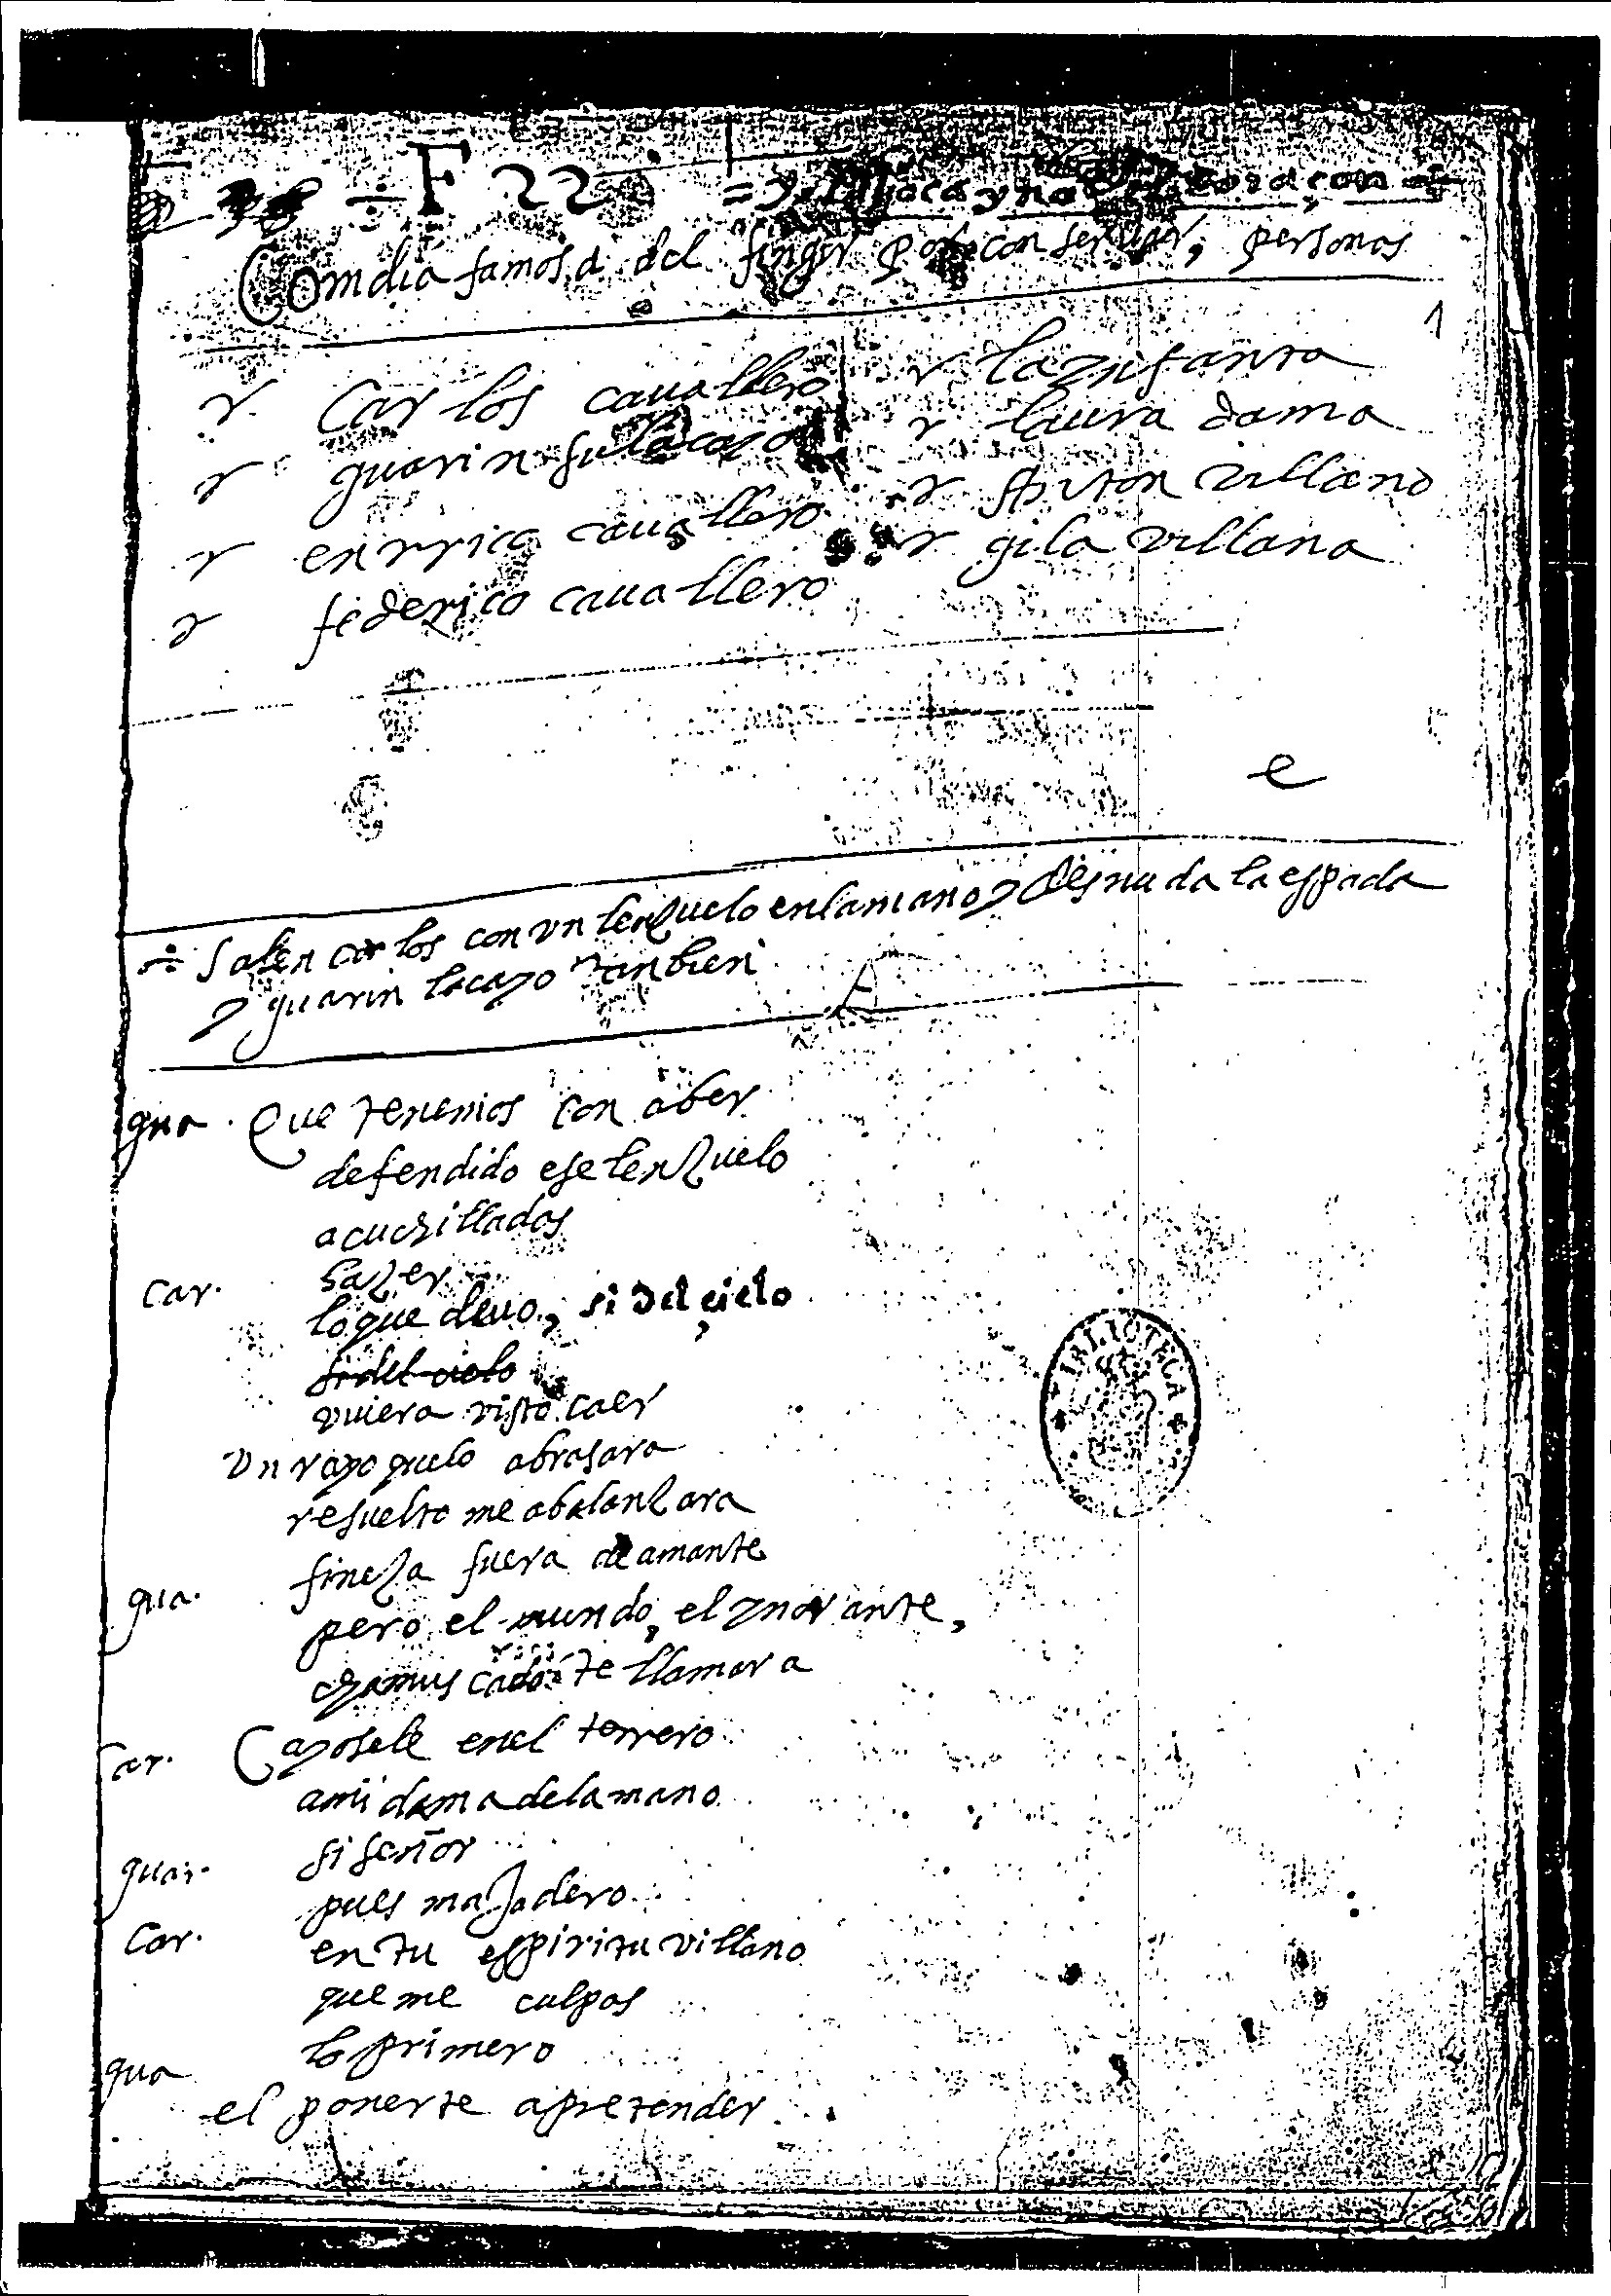 F 220 = y. boca y no el coraçon
Comdia famosa del fingir por conseruar, personas
1
r Carlos cauallero
r guarin su lacayo
r enrrico cauallero
r federico cauallero
r la ynfanta
r laura dama
r Anton villano
r gila villana
e
Salen carlos con vn lenzuelo en la mano y desnuda la espada
y guarin lacayo tanbien
gua. Que tenemos con aber
defendido ese lenzuelo
acuchillados
Car. hazer
lo que deuo, si del cielo
si del cielo
viuera visto caer
vn rayo que lo abrasara
resuelto me abalanzara
gua. fineza fuera de amante
pero el mundo, el ynorante,
chamuscado te llamara
Car. Cayosele en el terrero
a mi dama de la mano
guar. si señor
Car. pues majadero
en tu espiritu villano
que me culpas
gua lo primero
el ponerte a pretender
BIBLIOTECA